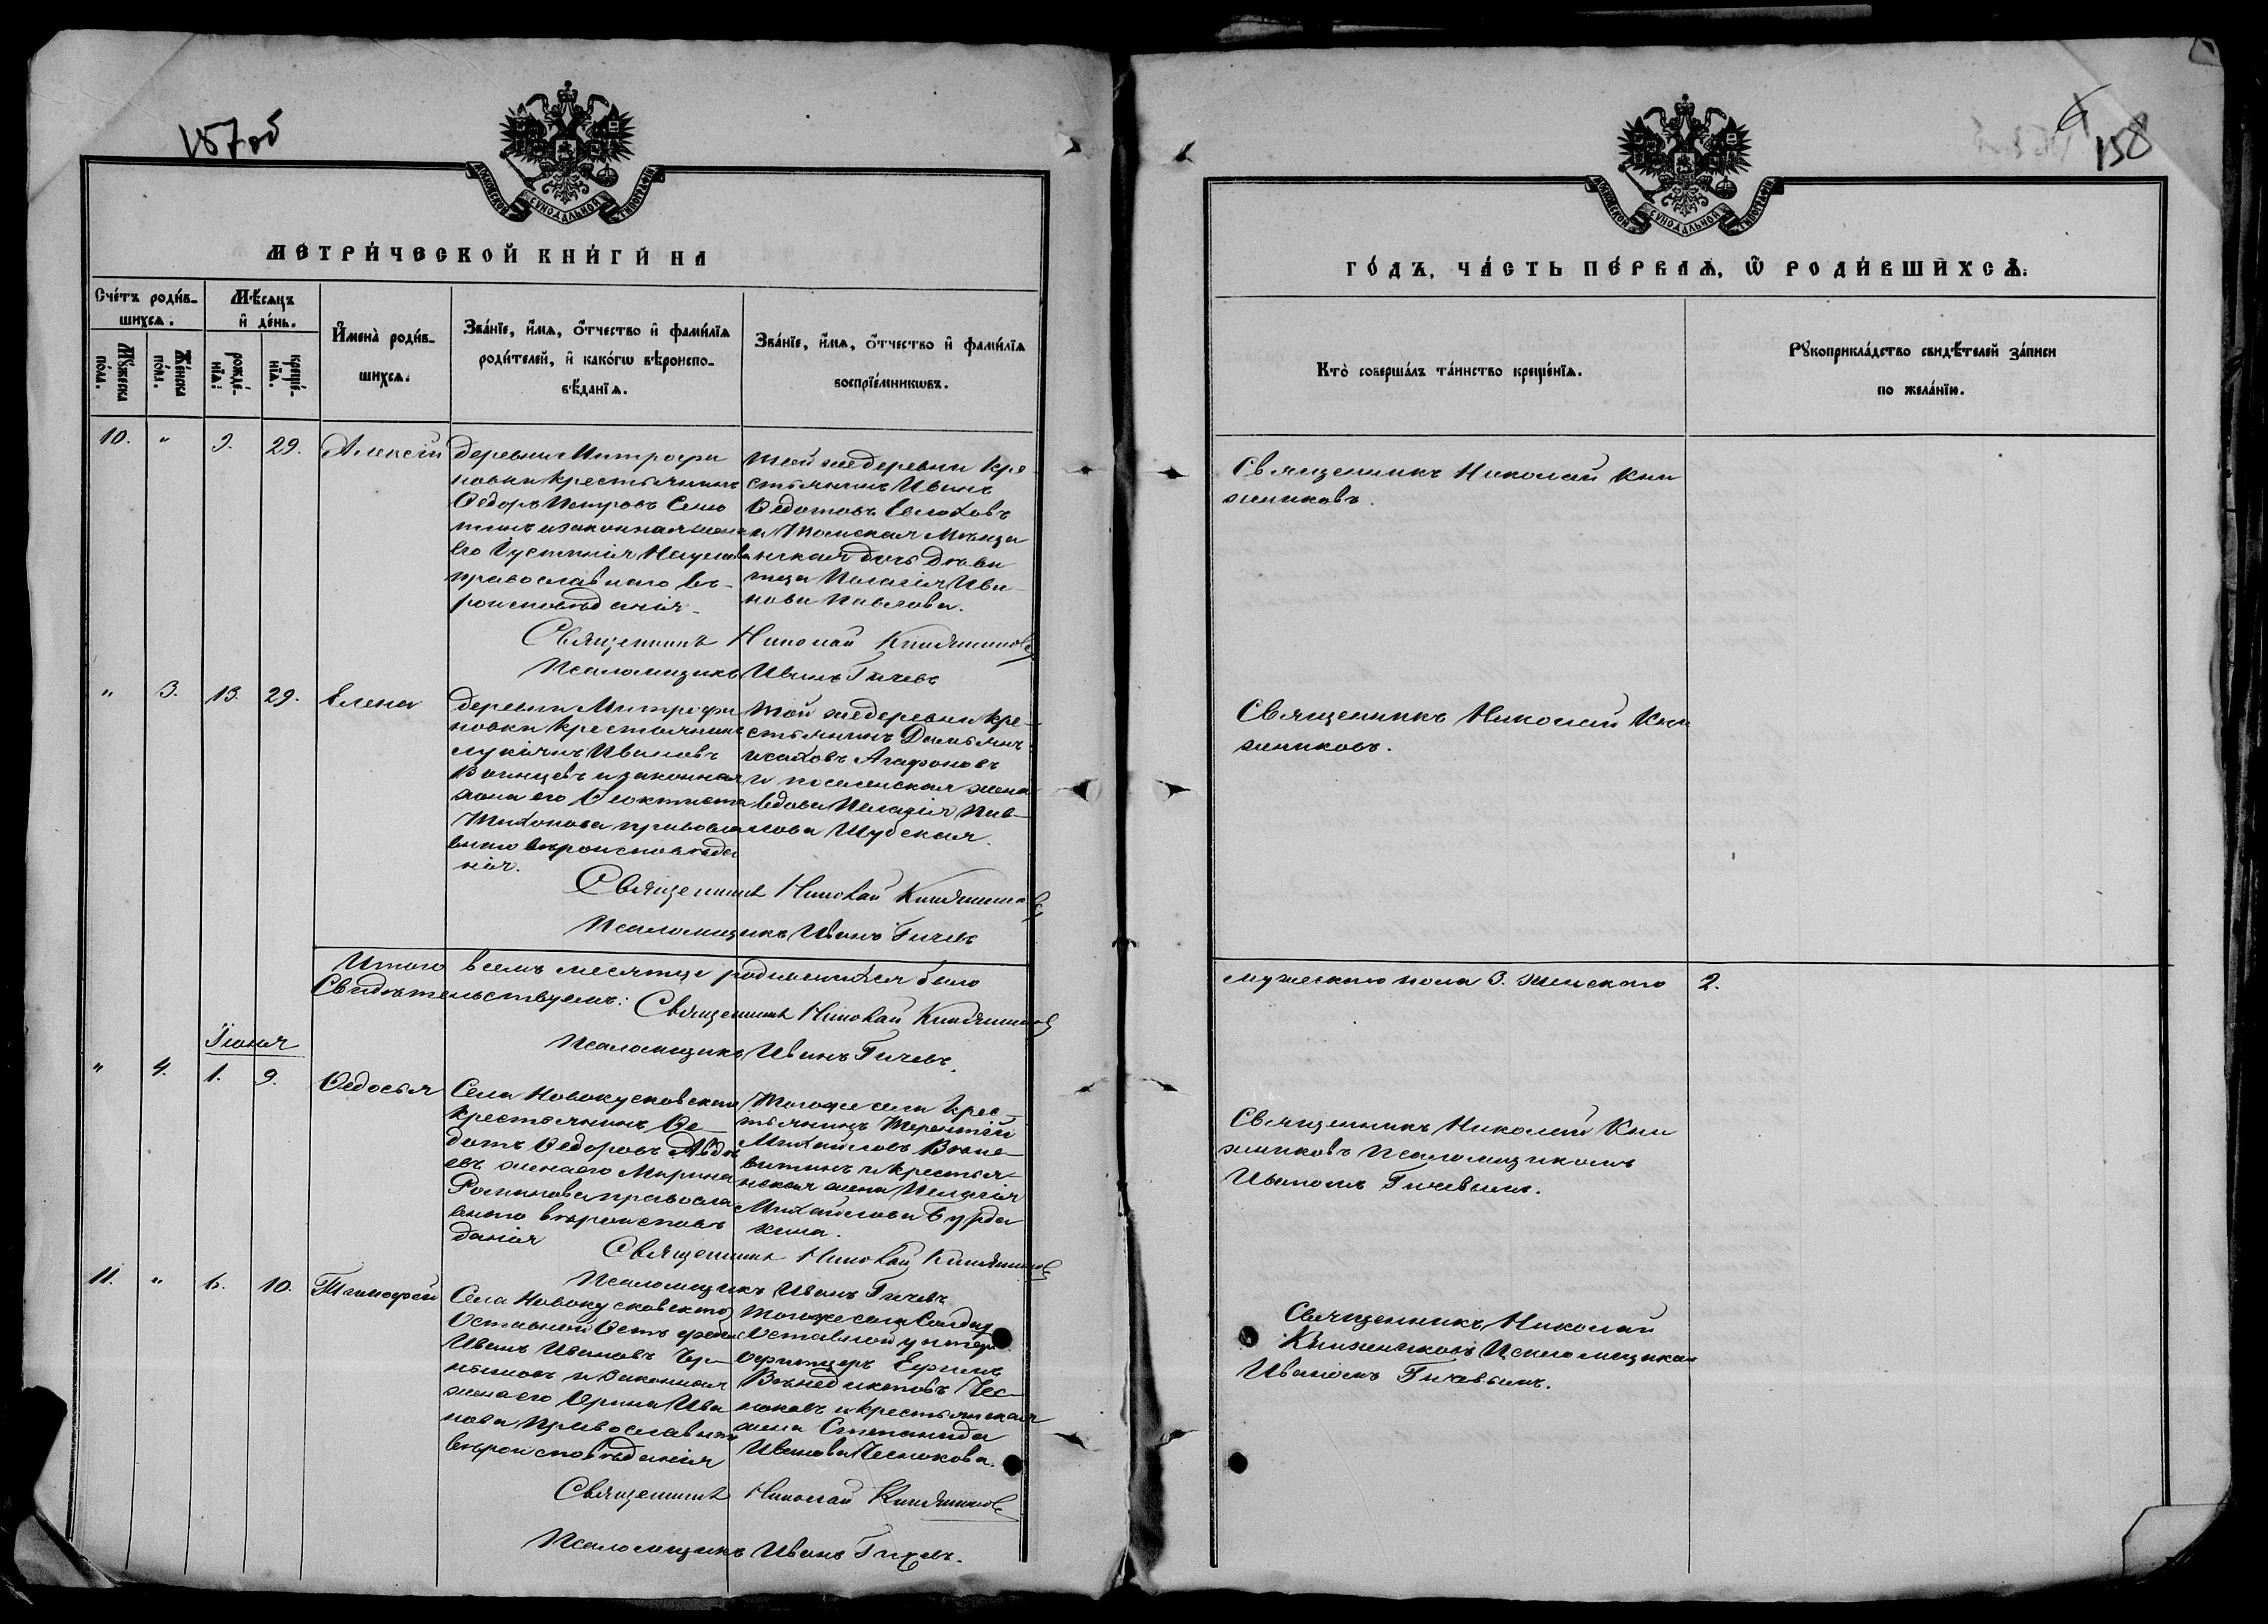 187 об
МОСКОВСКОЙ СУНОДАЛЬНОЙ ТИПОГРАФІИ
МЕТРИ́ЧЕСКОЙ КНИ́ГИ НА
Сче́тъ роди́в-
шихсѧ.
Мѣ́сѧцъ
и҆ де́нь.
Мꙋ́жеска
по́ла.
Же́нска
по́ла.
рожде́-
нїѧ:
креще́-
нїѧ.
И҆мена̀ роди́в-
шихсѧ.
Зва́нїе, и҆́мѧ, ѻ҆́тчество и҆ фамі́лїѧ
роди́телей, и҆ како́гѡ вѣроиспо-
вѣ́данїѧ.
Зва́нїе, и҆́мѧ, ѻ҆́тчество и҆ фамі́лїѧ
воспрїе́мникѡвъ.
10. " 9. 29. Алексій
деревни Митрофа
новки крестьянинъ
Ѳедоръ Петровъ
и законная жена
его Іустинія Наумова
православнаго вѣ-
роисповѣданія.
той же деревни кре
стьянинъ Иванъ
Ѳедотовъ Евлаховъ
и Томская Мѣща
нская дочь Дѣви
ца Пелагія Ива
нова Павлова.
Священникъ Николай Книжниковъ
Псаломщикъ Иванъ Гичевъ
" 3. 13. 29. Елена
деревни Митрофа
новки крестьянинъ
Лукіянъ Ивановъ
и законная
жена его Ѳеоктиста
Тихонова православ
внаго вѣроисповѣда
нія.
той же деревни кре-
стьянинъ Дамьянъ
Исаковъ Агафоновъ
и поселенская жена
вдова Пелагія Пав-
лова Шубская.
Священникъ Николай Книжниковъ
Псаломщикъ Иванъ Гичевъ
Итого всемъ месяце родившихся было
Свидѣтельствуемъ: Священникъ Николай Книжниковъ
Псаломщикъ Иванъ Гичевъ.
Іюня
" 4. 1. 9. Ѳедосья
Села Новокусковскаго
крестьянинъ Ѳе-
дотъ Ѳедоровъ Авдѣ
евъ жена его Марина
Романова православ
внаго вѣроисповѣ
данія
Того же села крес-
тьянинъ Терентій
Михайловъ
и крестья-
нская жена Пелагія
Михайлова Бурда
кина.
Священникъ Николай Книжниковъ
Псаломщикъ Иванъ Гичевъ
11. " 6. 10. Тимофей
Села Новокусковскаго
Оставной
Иванъ Ивановъ Чер
нышовъ и законная
жена его Ирина Ива
нова Православнаго
вѣроисповѣданія
Того же села Солдат
Оставной унтеръ
офицеръ Ефимъ
Венедиктовъ Чес-
ноковъ и крестьянская
жена Степанида
Иванова Чеснокова.
Священникъ Николай Книжниковъ
Псаломщикъ Иванъ Гичевъ.
158
МОСКОВСКОЙ СУНОДАЛЬНОЙ ТИПОГРАФІИ
ГО́ДЪ, ЧА́СТЬ ПЕ́РВАѦ, Ѽ РОДИ́ВШИХСѦ.
Кто̀ соверша́лъ та́инство креще́нїѧ.
Рꙋкоприкла́дство свидѣ́телей за́писи
по жела́нїю.
Священникъ Николай Кни
жниковъ.
Священникъ Николай Кни
жниковъ.
мужескаго пола 3. женскаго 2.
Священникъ Николай Кни
жниковъ Псаломщикомъ
Иваномъ Гичевымъ.
Священникъ Николай
Книжниковъ Псаломщикомъ
Иваномъ Гичевымъ.